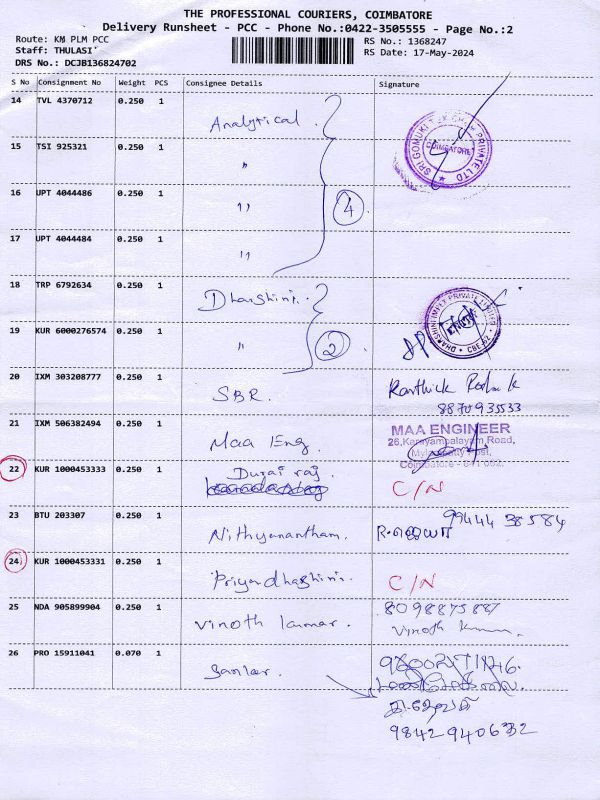 THE PROFESSIONAL COURIERS, COIMBATORE
Delivery Runsheet - PCC - Phone No.:0422-3505555 - Page No.:2
Route: KM PLM PCC RS No.: 1368247
Staff: THULASI RS Date: 17-May-2024
DRS No.: DCJB136824702
S No Consignment No Weight PCS Consignee Details Signature
14 TVL 4370712 0.250 1 Analytical
15 TSI 925321 0.250 1 "
SRI GOMUKI PRIVATE LTD
COIMBATORE
16 UPT 4044486 0.250 1 "
4
17 UPT 4044484 0.250 1 "
18 TRP 6792634 0.250 1 Dharshini.
19 KUR 6000276574 0.250 1 " 2
PRIVATE LIMITED
20 IXM 303208777 0.250 1 SBR. Karthick
8870935533
21 IXM 506382494 0.250 1 Maa Eng.
MAA ENGINEER
26,Karayampalayam,Road,
22 KUR 1000453333 0.250 1 Durai raj C/N
23 BTU 203307 0.250 1 Nithyanantham. 99444 38584
24 KUR 1000453331 0.250 1 Priyadharshini. C/N
25 NDA 905899904 0.250 1 Vinoth kumar. 8098875887
Vinoth Kumar
26 PRO 15911041 0.070 1
9842940632